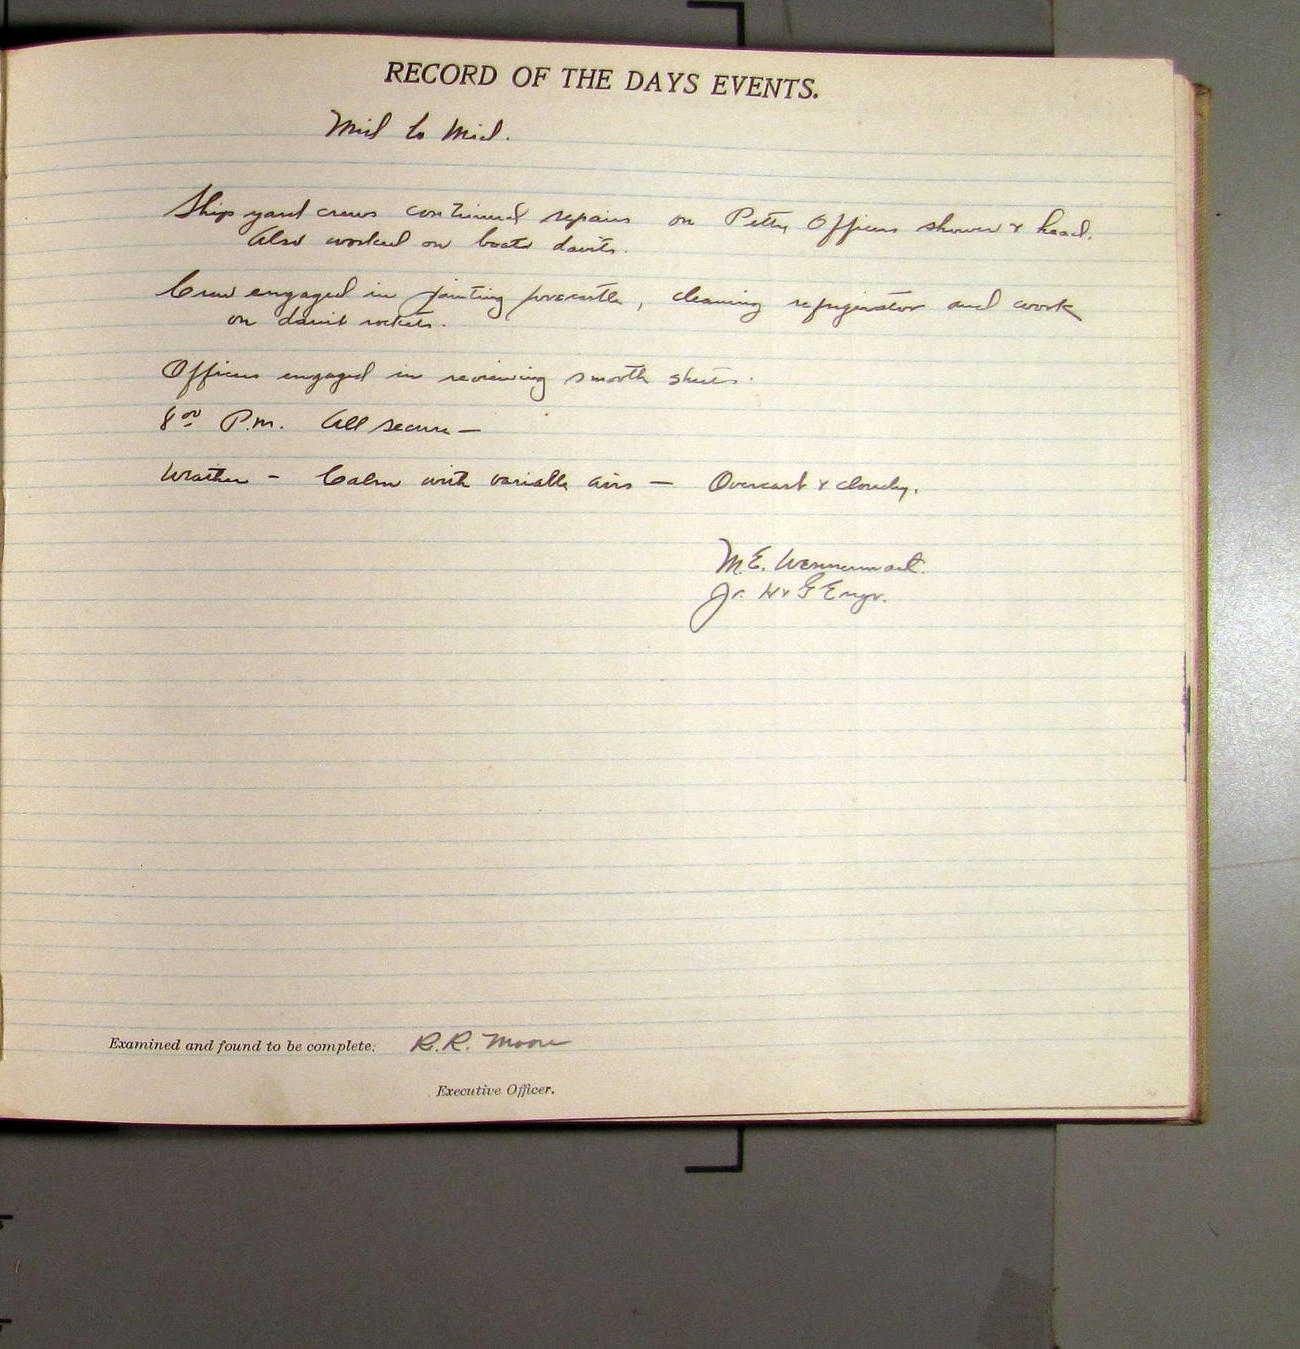 RECORD OF THE DAYS EVENTS.
Mid to Mid.
Ships yard crews continued repairs on Petty Officers shower & head.
Also worked on boats davits.
Crew engaged in painting forecastle, cleaning refrigerator and work
on davit sockets.
Officers engaged in reviewing smooth sheets.
8 00 P.M. All secure —
Weather — Calm with variable airs — Overcast & cloudy.
M.E. Wennermark
Jr. H & G Engr.
Examined and found to be complete: R.R. Moore
Executive Officer.